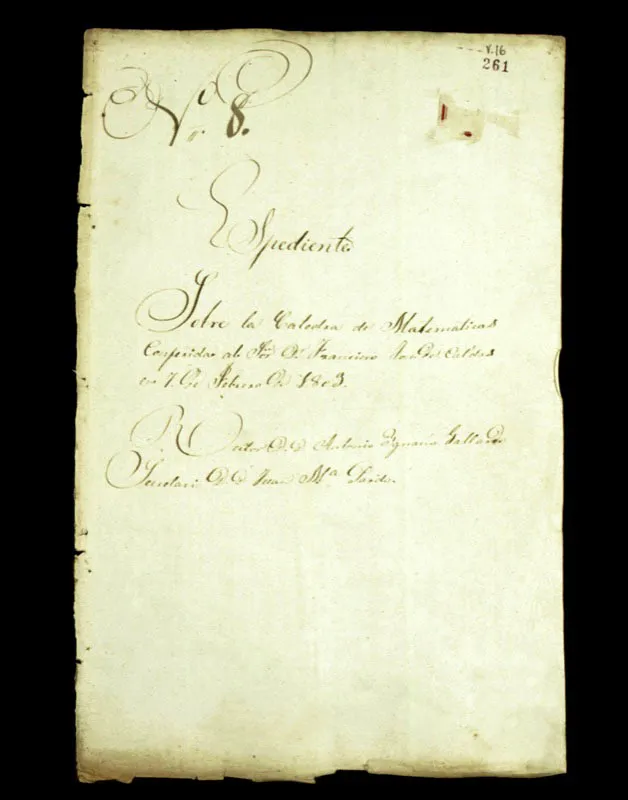 V.16
261
No. 8.
Espediente
Sobre la Catedra de Matematicas
Conferida al Sor. Dn. Francisco José de Caldas
en 7. de Febrero de 1803.
Rector D. D. Antonio Ygnacio Gallardo
Secretario D. D. Juan Ma. Pardo.